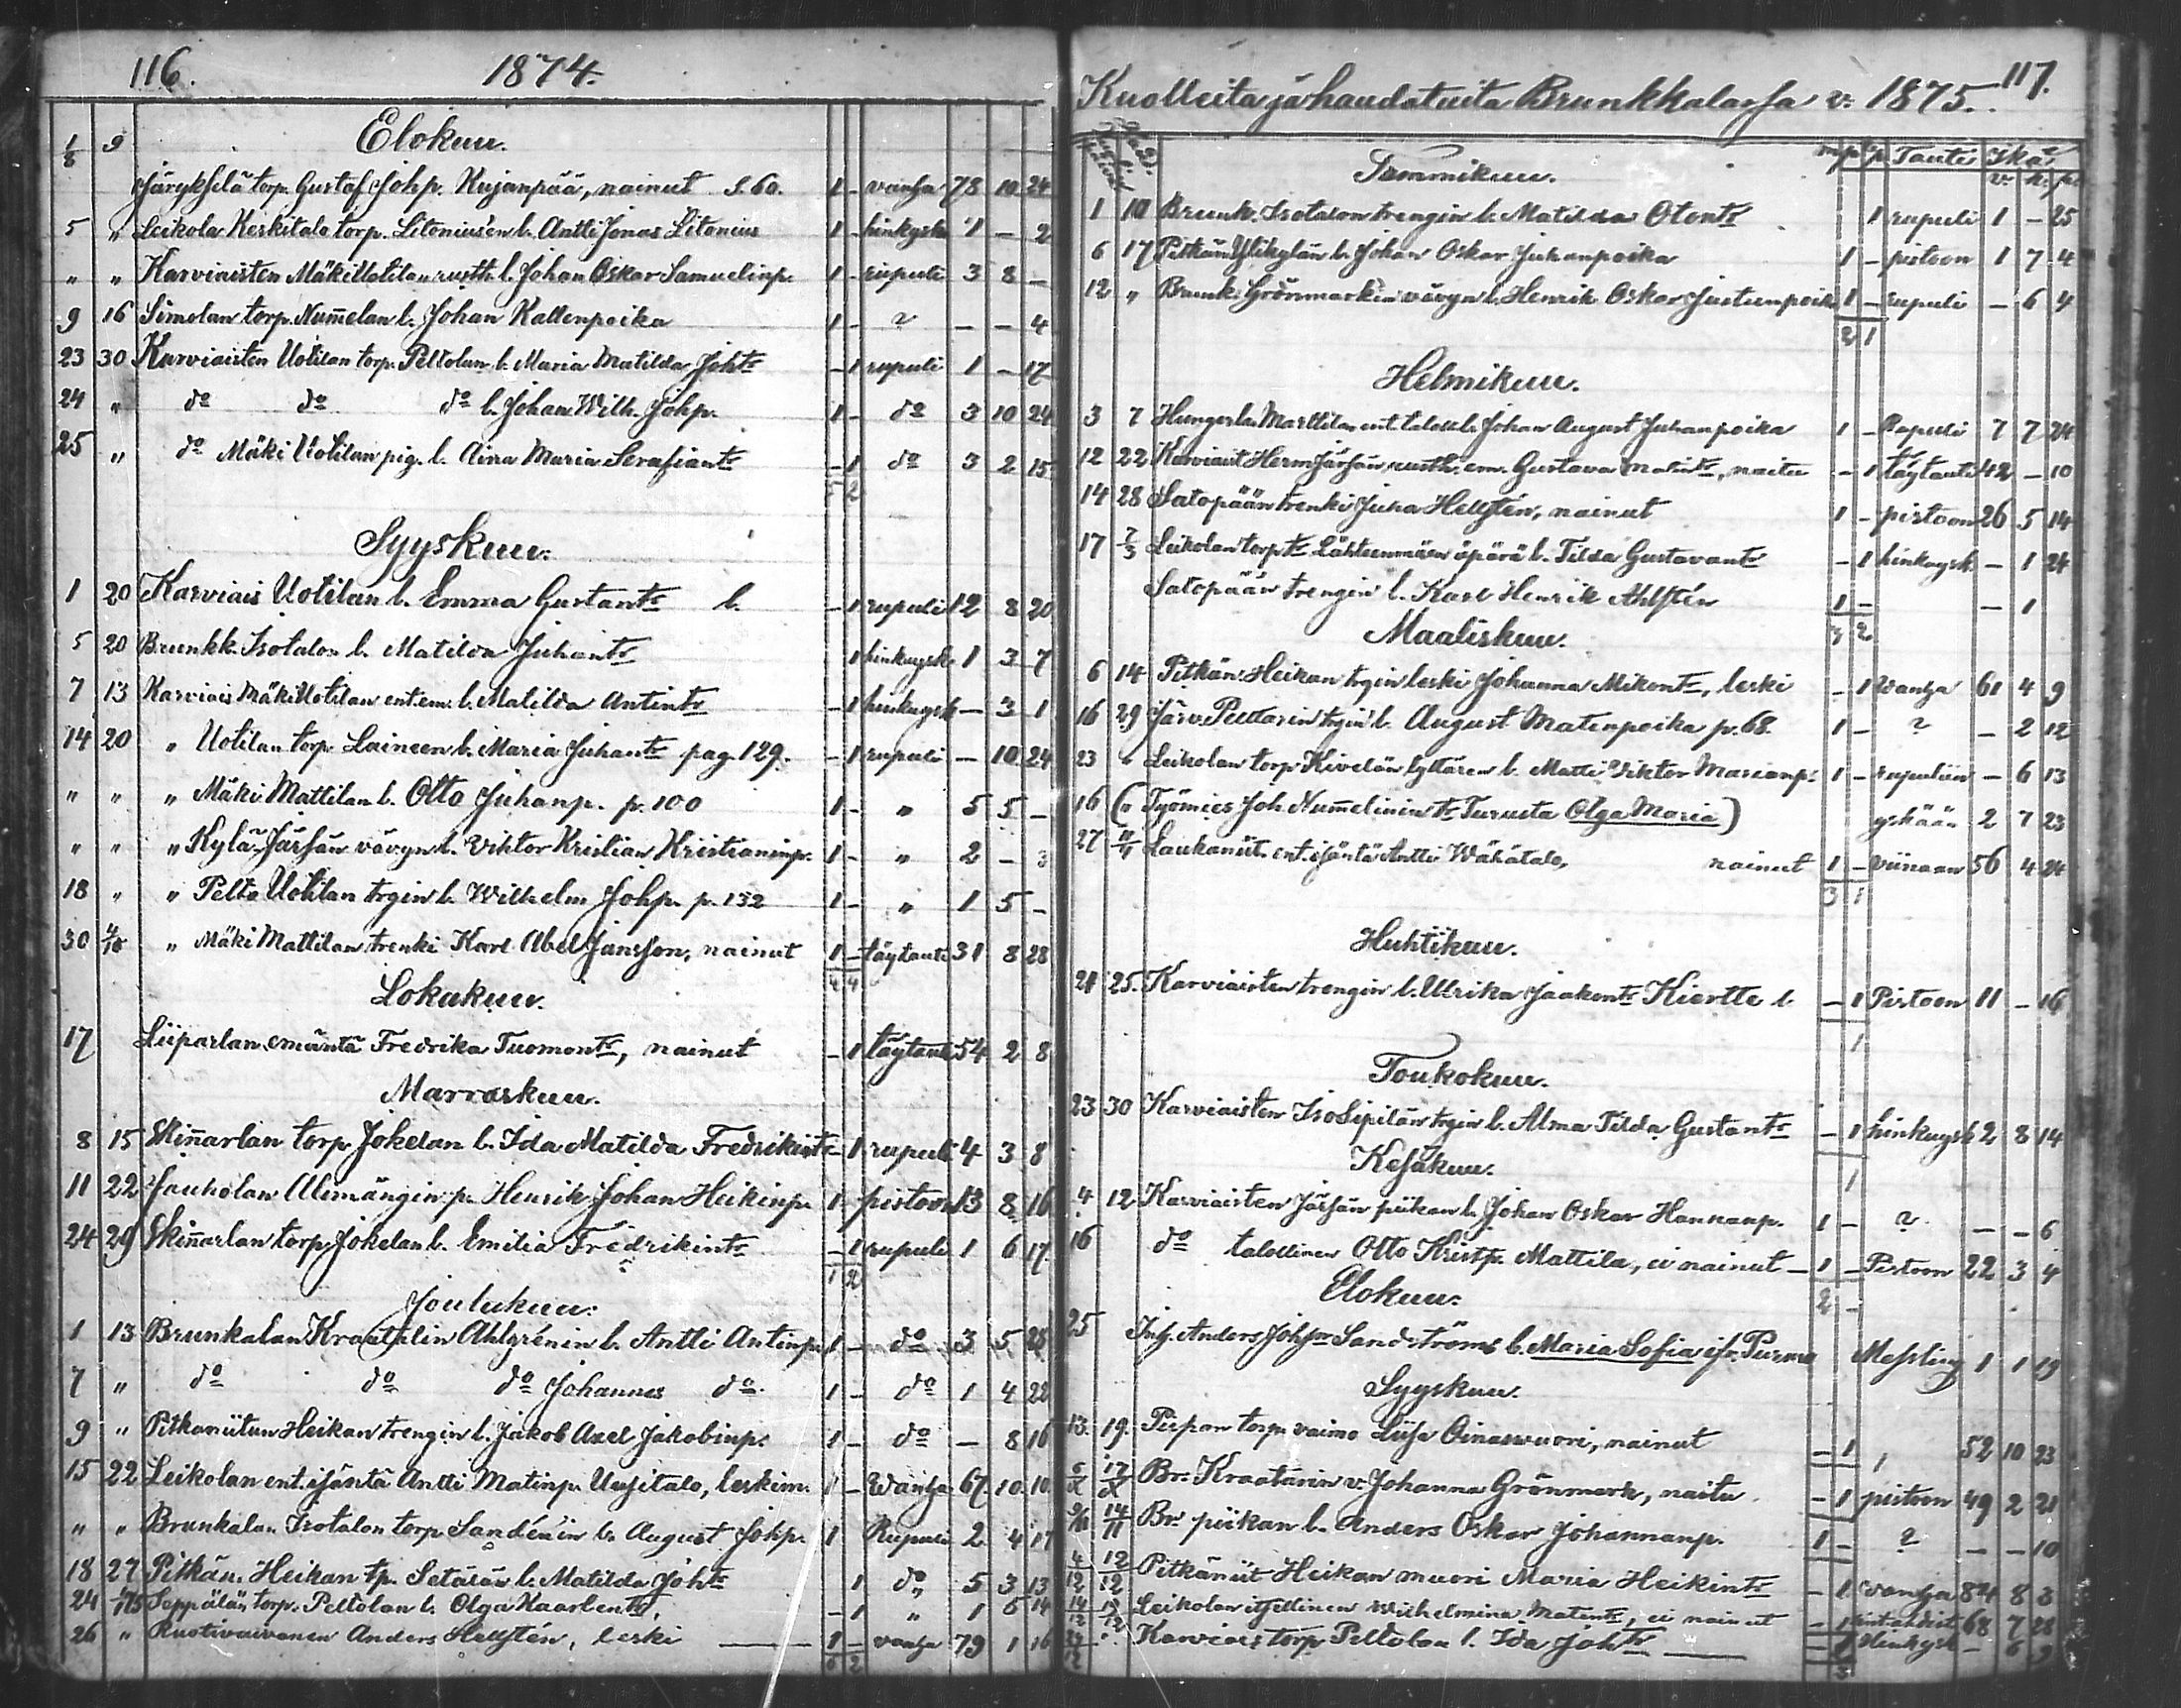 116. 1874.
Elokuu.
1/8 9 Järykselä torp. Gustaf Johp. Kujanpää, nainut S. 60. 1 - vanha 78 10 24
5 " Leikola Keskitalo torp. Litoniusen l. Antti Jonas Litonius 1 - hinkuysk 1 - 2
" " Karviaisten Mäki Uotilan rusth. l. Johan Oskar Samuelinp. 1 - rupuli 3 8 -
9 16 Simolan torp. Num̄elan l. Johan Kallenpoika 1 - ? - - 4
23 30 Karviaisten Uotilan torp. Peltolan l. Maria Matilda Johtr - 1 rupuli 1 - 17
24 " do do do l. Johan Wilh. Johp. 1 - do 3 10 24
25 " do Mäki Uotilan pig. l. Aina Maria Serafiantr - 1 do 3 2 15
5 2
Syyskuu.
1 20 Karviais Uotilan l. Emma Gustantr l. - 1 rupuli 12 8 20
5 20 Brunkk. Isotalon l. Matilda Juhantr 1 hinkuysk 1 3 7
7 13 Karviais Mäki Uotilan ent. em. l. Matilda Antintr - 1 hinkuysk - 3 1
14 20 " Uotilan torp. Laineen l. Maria Juhantr pag. 129. - 1 rupuli - 10 24
" " " Mäki Mattilan l. Otto Juhanp. p. 100 1 - " 5 5 -
" " " Kylä-Jäshän vävyn l. Viktor Kristian Kristianinp. 1 - " 2 - 3
18 " " Pelto Uotilan trgin l. Wilhelm Johp. p. 132 1 - " 1 5 -
30 4/10 " Mäki Mattilan trenki Karl Abel Jansson, nainut 1 - täytauti 31 8 28
4 4
Lokakuu.
17 Liiparlan emäntä Fredrika Tuomontr, nainut - 1 täytauti 54 2 8
Marraskuu.
8 15 Skin̄arlan torp. Jokelan l. Ida Matilda Fredrikintr - 1 rupuli 4 3 8
11 22 Jauholan Alimängin p. Henrik Johan Heikinp. 1 - pistoon 13 8 16
24 29 Skin̄arlan torp. Jokelan l. Emilia Fredrikintr - 1 rupuli 1 6 17
1 2
Joulukuu:
1 13 Brunkalan Kraatalin Ahlgrénin l. Antti Antinp. 1 - do 3 5 25
7 " do do do Johannes do 1 - do 1 4 22
9 " Pitkäniitun Heikan trengin l. Jakob Axel Jakobinp. 1 - do - 8 16
15 22 Leikolan ent. isäntä Antti Matinp. Uusitalo, leskim. 1 - Wanha 67 10 10
" " Brunkalan Isotalon torp. Sandénin l. August Johp. 1 Rupuli 2 4 17
18 27 Pitkän. Heikan tp. Setälän l. Matilda Johtr 1 do 5 3 13
24 Seppälän torp. Peltolan l. Olga Kaarlentr, - 1 " 1 6 14
26 " Ruotivaivanen Anders Hellstén, leski 1 - vanha 79 1 16
6 2
117.
Kuolleita ja haudatuita Brunkkalassa v: 1875.
mp. vp. Tauti Ikä
v. k. p.
Tammikuu.
1 10 Brunk. Isotalon trengin l. Matilda Otontr 1 rupuli 1 - 25
6 17 Pitkän. Ylikylän l. Johan Oskar Juhanpoika 1 - pistoon 1 7 4
12 " Brunk. Grönmarkin vävyn l. Henrik Oskar Justunpoik. 1 - rupuli - 6 4
2 1
Helmikuu.
3 7 Hungerla Marttilan ent. talon l. Johan August Juhanpoika 1 - Rupuli 7 7 24
12 22 Karviaist Herm Järsän rusth. em. Gustava Matintr, naitu - 1 täytauti 42 - 10
14 28 Satopään trenki Juha Hellstén, nainut 1 - pistoon 26 5 14
17 7/3 Leikolan torp. tr Lähteenmäen äpärä l. Tilda Gustavantr - 1 hinkuysk - 1 24
Satopään trengin l. Karl Henrik Ahlstén 1 - - 1
3 2
Maaliskuu.
6 14 Pitkän: Heikan trgin leski Johanna Mikontr, leski - 1 Wanha 61 4 9
16 29 Järv. Pelttarin trgin l. August Matinpoika p. 68. 1 - ? - 2 12
23 " Leikolan torp. Kivelän tyttären l. Matti Viktor Marianp. 1 - rupuliin - 6 13
16 (" Työmies Joh. Num̄elinin tr Turusta Olga Maria) yskään 2 7 23
27 4/4 Laukaniit. ent. isäntä Antti Wähätalo, nainut 1 - viinaan 56 4 24
3 1
Huhtikuu.
21 25. Karviaisten trengin l. Ulrika Jaakontr Kiertte l. - 1 Pistoon 11 - 16
1
Toukokuu.
23 30 Karviaisten Iso Sipilän trgin l. Alma Tilda Gustantr - 1 hinkuysk 2 8 14
1
Kesäkuu.
4 12 Karviaisten Jäshän piikan l. Johan Oskar Hannanp. 1 - ? - - 6
16 do talollinen Otto Kristp. Mattila, ei nainut 1 - Pistoon 22 3 4
2 -
Elokuu:
25 Inh. Anders Johsson Sandströms b. Maria Sofia ifr. Purmo Messling 1 1 19
Syyskuu.
13. 19. Piipan torp. vaimo Liisa Oinasvuori, nainut - 1 52 10 23
Br. Kraatarin v. Johanna Grönmark, naitu - 1 pistoon 49 2 21
14/11 Br. piikan l. Anders Oskar Johannanp. 1 - ? - - 10
4/12 12/12 Pitkäniit Heikan muori Maria Heikintr - 1 vanha 84 8 3
14/12 Leikolan itsellinen Wilhelmina Matintr, ei nainut - 1 68 7 28
Karviais torp. Peltolan l. Ida Johtr Hinkysk - 6 9
3